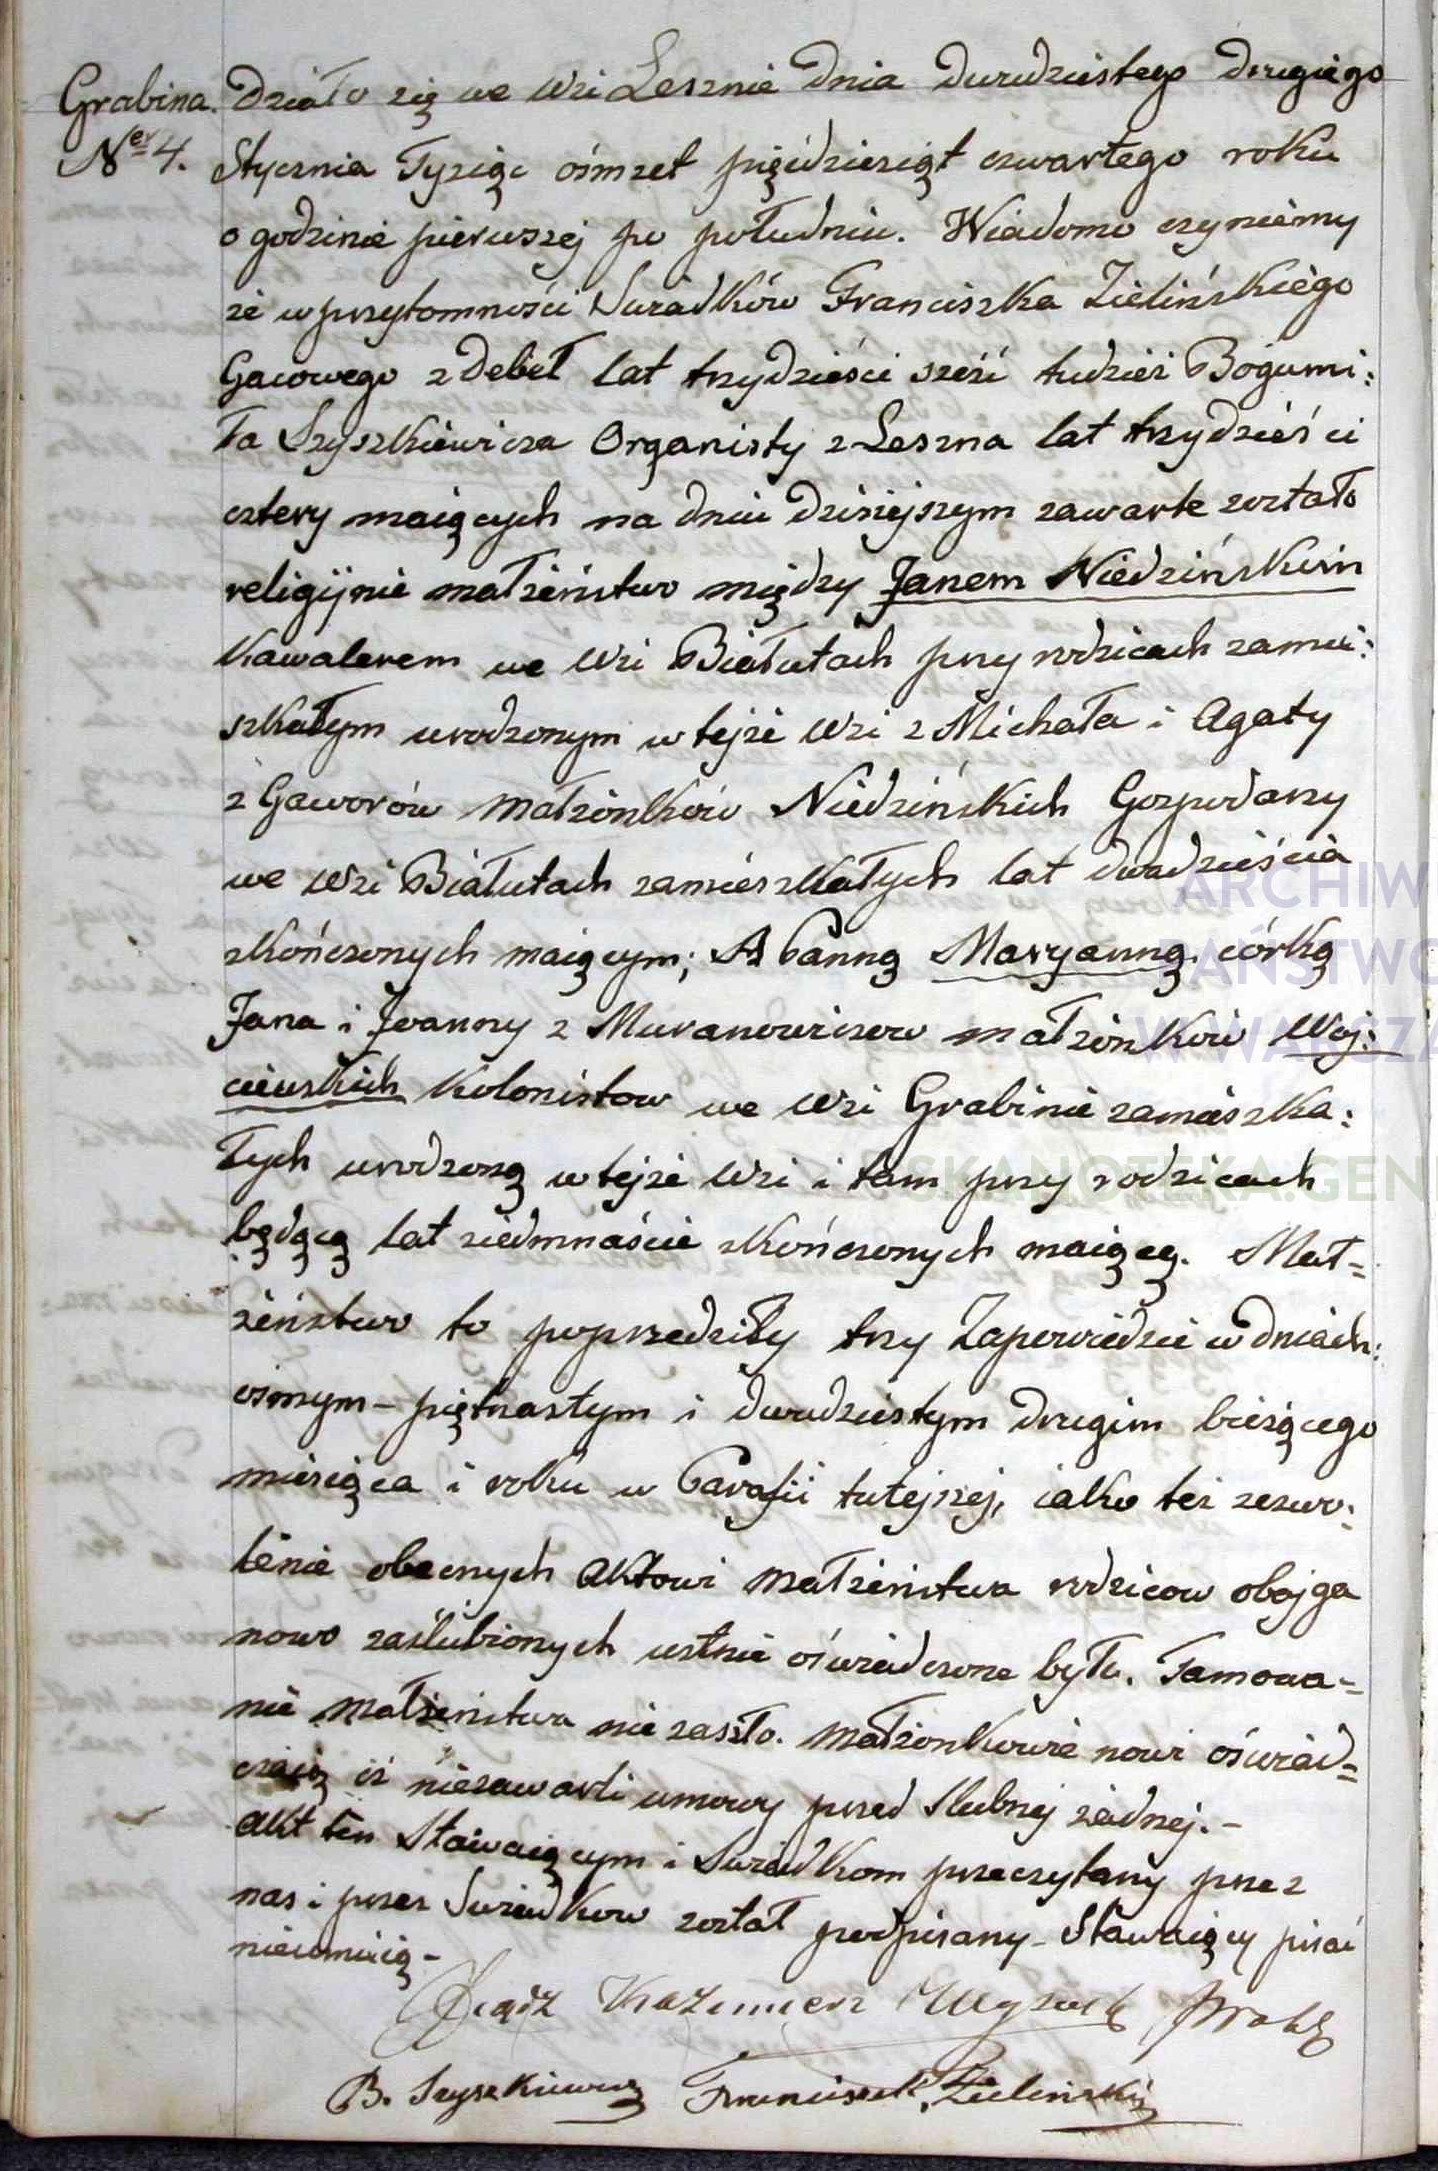 Grabina. Działo się we Wsi Lesznie dnia dwudziestego drugiego
Ner 4. Stycznia Tysiąc ośmset pięćdziesiąt czwartego roku
o godzinie pierwszej po południu. Wiadomo czyniemy
że w przytomności Swiadków Franciszka Zielińskiego
Gacowego z Debeł lat trzydzieści sześć tudzież Bogumi:
ła Szyszkiewicza Organisty z Leszna lat trzydzieści
cztery maiących na dniu dzisiejszym zawarte zostało
religijnie małżeństwo między Janem Niedzińskim
Kawalerem we Wsi Białutach przy rodzicach zamie:
szkałym urodzonym w tejże Wsi z Michała i Agaty
z Gaworów Małżonków Niedzińskich Gospodarzy
we Wsi Białutach zamieszkałych lat dwadzieścia
skończonych maiącym; A Panną Maryanną córką
Jana i Joanny z Muranowiczow małżonków Woj:
ciewskich Kolonistow we Wsi Grabinie zamieszka:
łych urodzoną w tejże Wsi i tam przy rodzicach
będącą lat siedmnaście skończonych maiącą. Mał=
żeństwo to poprzedziły trzy Zapowiedzie w dniach:
osmym – piętnastym i dwudziestym drugim bieżącego
miesiąca i roku w Parafii tutejszej, iako też zezwo:
lenie obecnych Aktowi Małżeństwa rodzicow obojga
nowo zaślubionych ustnie oświadczone było. Tamowa=
nie Małżeństwa nie zaszło. Małżonkowie nowi oświad=
czaią iż niezawarli umowy przed Slubnej żadnej. –
Akt ten Stawaiącym i Swiadkom przeczytany przez
nas i przez Swiadkow został podpisany – Stawaiący pisać
nieumieią –
Xiądz Kazimierz
B. Szyszkiewicz Franciszek Zieliński
ARCHIW
PAŃSTWO
W WARSZA
SKANOTEKA.GEN